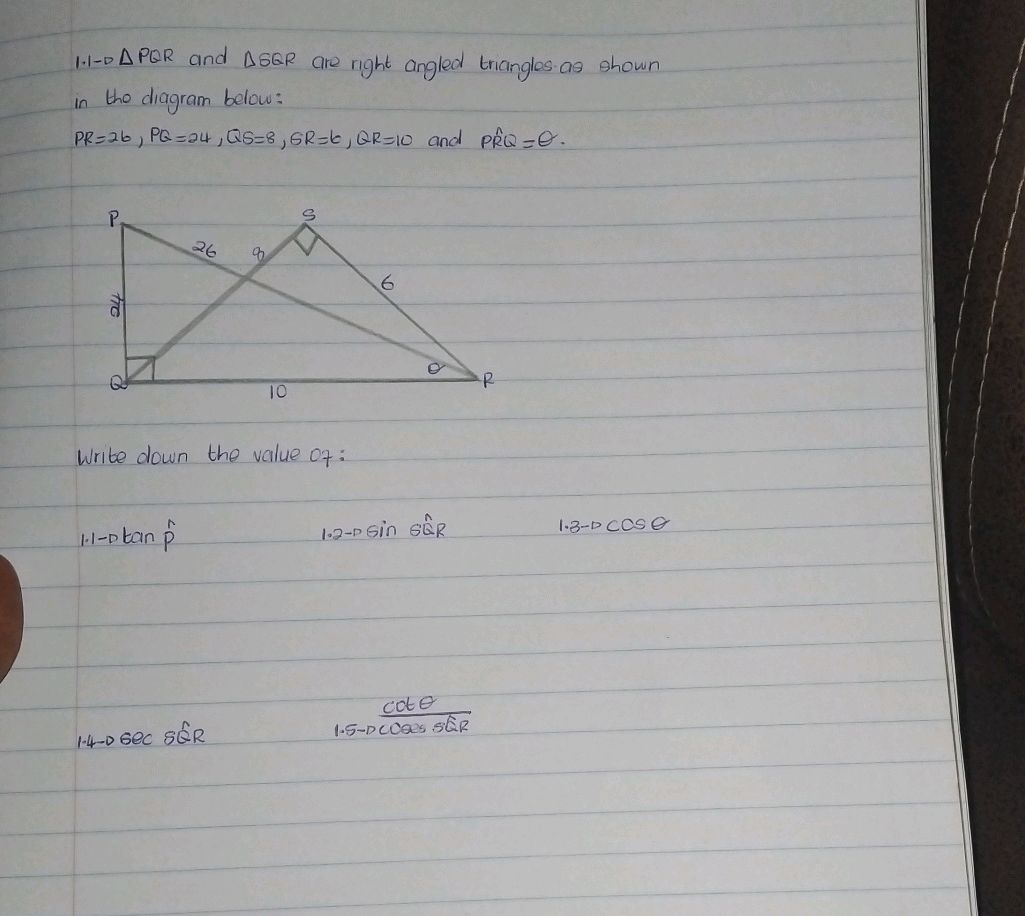 1.1→ △PQR and △SQR are right angled triangles as shown
in the diagram below:
PR=26, PQ=24, QS=8, SR=6, QR=10 and PR̂Q=θ.
P S
26 8
24 6
Q θ R
10
Write down the value of:
1.1→ tan P̂ 1.2→ sin SQ̂R 1.3→ cos θ
cot θ
1.4→ sec SQ̂R 1.5→ cosec SQ̂R